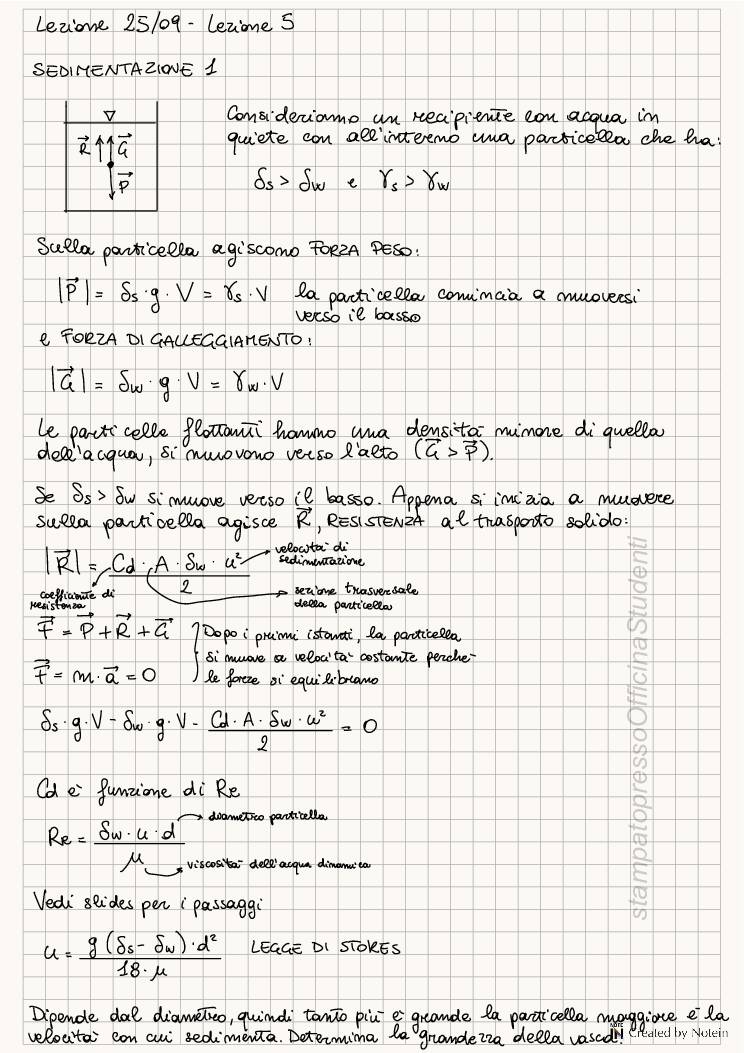 Lezione 25/09 - Lezione 5
SEDIMENTAZIONE 1
Consideriamo un recipiente con acqua in
quiete con all'interno una particella che ha:
R⃗ G⃗
P⃗
δs > δw e γs > γw
Sulla particella agiscono FORZA PESO:
|P⃗| = δs · g · V = γs · V la particella comincia a muoversi
verso il basso
e FORZA DI GALLEGGIAMENTO:
|G⃗| = δw · g · V = γw · V
Le particelle flottanti hanno una densità minore di quella
dell'acqua, si muovono verso l'alto (G⃗ > P⃗).
Se δs > δw si muove verso il basso. Appena si inizia a muovere
sulla particella agisce R⃗, RESISTENZA al trasporto solido:
|R⃗| = Cd · A · δw · u² / 2
velocità di
sedimentazione
coefficiente di
resistenza
sezione trasversale
della particella
F⃗ = P⃗ + R⃗ + G⃗
F⃗ = m · a⃗ = 0
Dopo i primi istanti, la particella
si muove a velocità costante perché
le forze si equilibrano
δs · g · V - δw · g · V - Cd · A · δw · u² / 2 = 0
Cd è funzione di Re
Re = δw · u · d / μ
diametro particella
viscosità dell'acqua dinamica
Vedi slides per i passaggi
u = g (δs - δw) · d² / 18 · μ LEGGE DI STOKES
Dipende dal diametro, quindi tanto più è grande la particella maggiore è la
velocità con cui sedimenta. Determina la grandezza della vasca!
stampatopressoOfficinaStudenti
NOTE IN Created by Notein